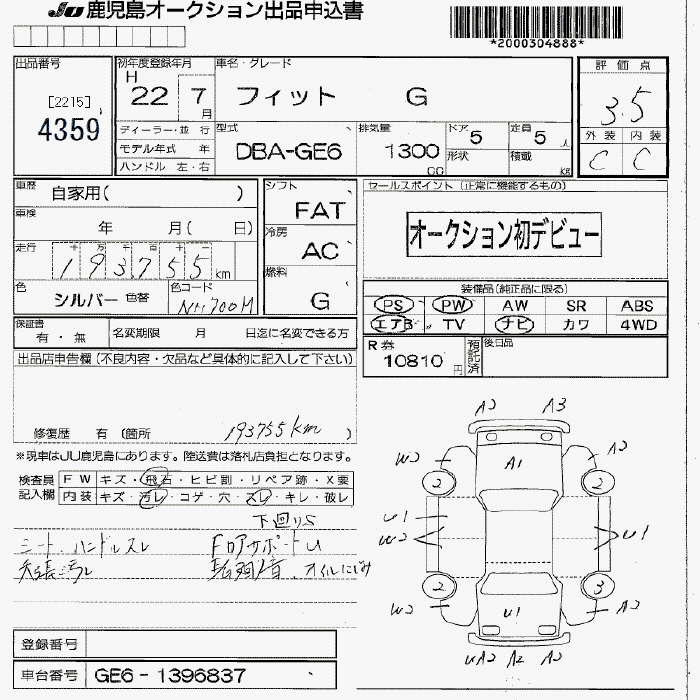 JU 鹿児島オークション出品申込書
*2000304888*
出品番号
[2215]
4359
初年度登録年月
H 22 7 月
車名・グレード
フィット G
評価点
3.5
外装 内装
C C
ディーラー・並行
モデル年式 年
ハンドル 左・右
型式
DBA-GE6
排気量
1300 cc
ドア 5
形状
定員 5 人
積載 kg
車歴
自家用( )
車検
年 月( 日)
走行
十 万 千 百 十
193755 km
色
シルバー 色替
色コード
NH700M
シフト
FAT
冷房
AC
燃料
G
セールスポイント (正常に機能するもの)
オークション初デビュー
装備品(純正品に限る)
PS PW AW SR ABS
エアB TV ナビ カワ 4WD
保証書
有・無
名変期限 月 日迄に名変できる方
R券
10810 円
預託済
後日品
出品店申告欄(不良内容・欠品など具体的に記入して下さい)
修復歴 有 (箇所 193755km )
※現車はJU鹿児島にあります。陸送費は落札店負担となります。
検査員記入欄
FW キズ・飛石・ヒビ割・リペア跡・X要
内装 キズ・汚レ・コゲ・穴・スレ・キレ・破レ
下回りS
シート、ハンドルスレ
FロアサポートU
オイルにじみ
A2 A3
W2 A1 A2
2 2
U1
W2 U1
2 3
W2 U1 A2
UA2 A2 A2
登録番号
車台番号 GE6-1396837